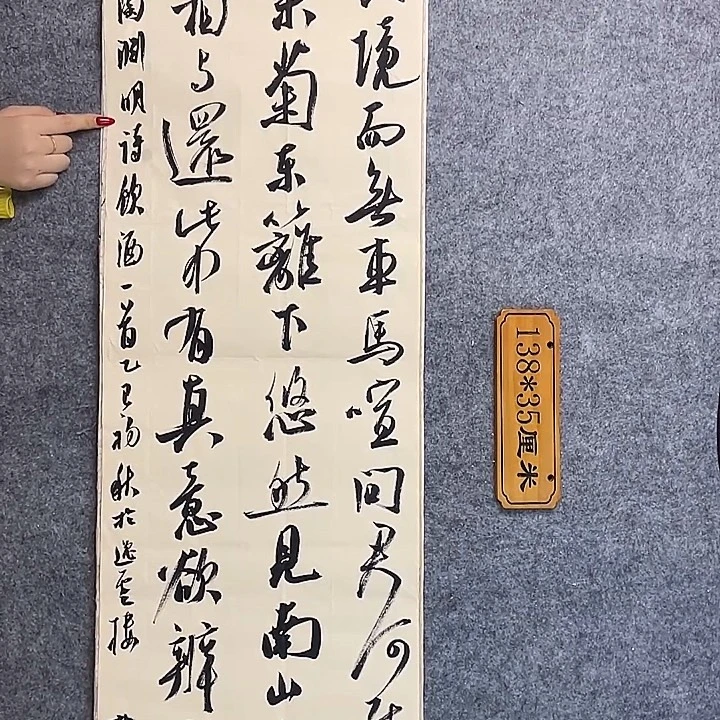 境而無車馬喧問君何
采菊東籬下悠然見南山
相与還此中有真意欲辨
陶淵明詩飲酒一首乙巳初秋於逸雲樓
138*35厘米